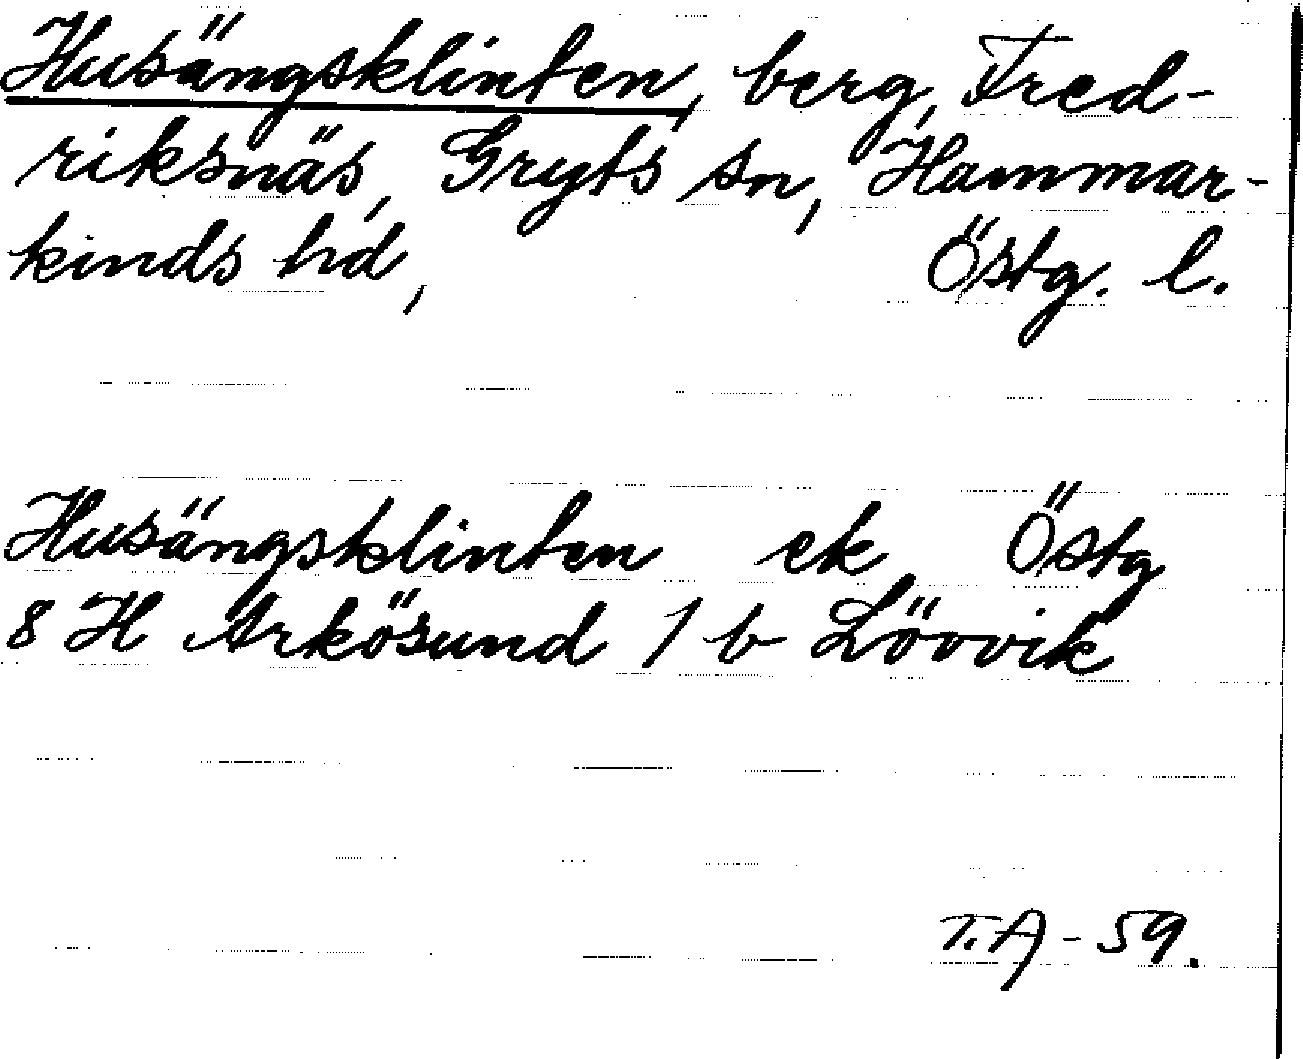 Husängsklinten, berg, Fred-
riksnäs, Gryts sn, Hammar-
kinds hd, Östg. l.
Husängsklinten ek Östg
8 H Arkösund 1 b Lövvik
T.A - 59.